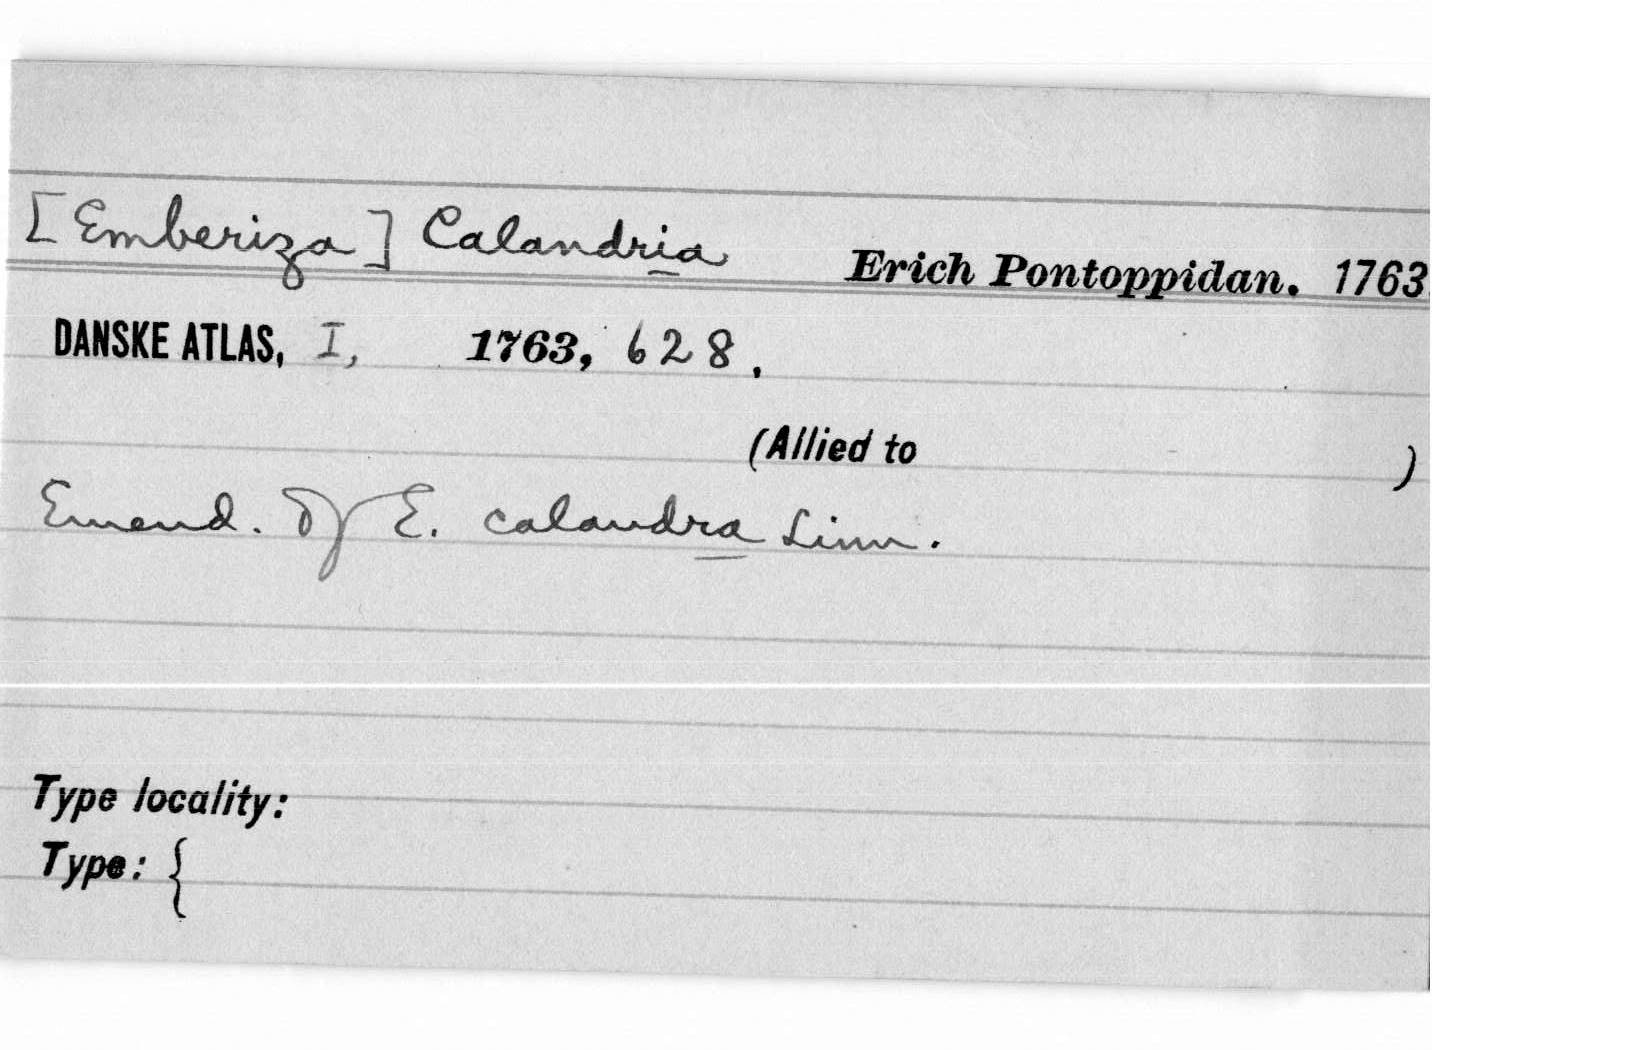 [Emberiza] Calandria Erich Pontoppidan. 1763.
DANSKE ATLAS, I, 1763, 628.
(Allied to )
Emend. of E. calandra Linn.
Type locality:
Type: {